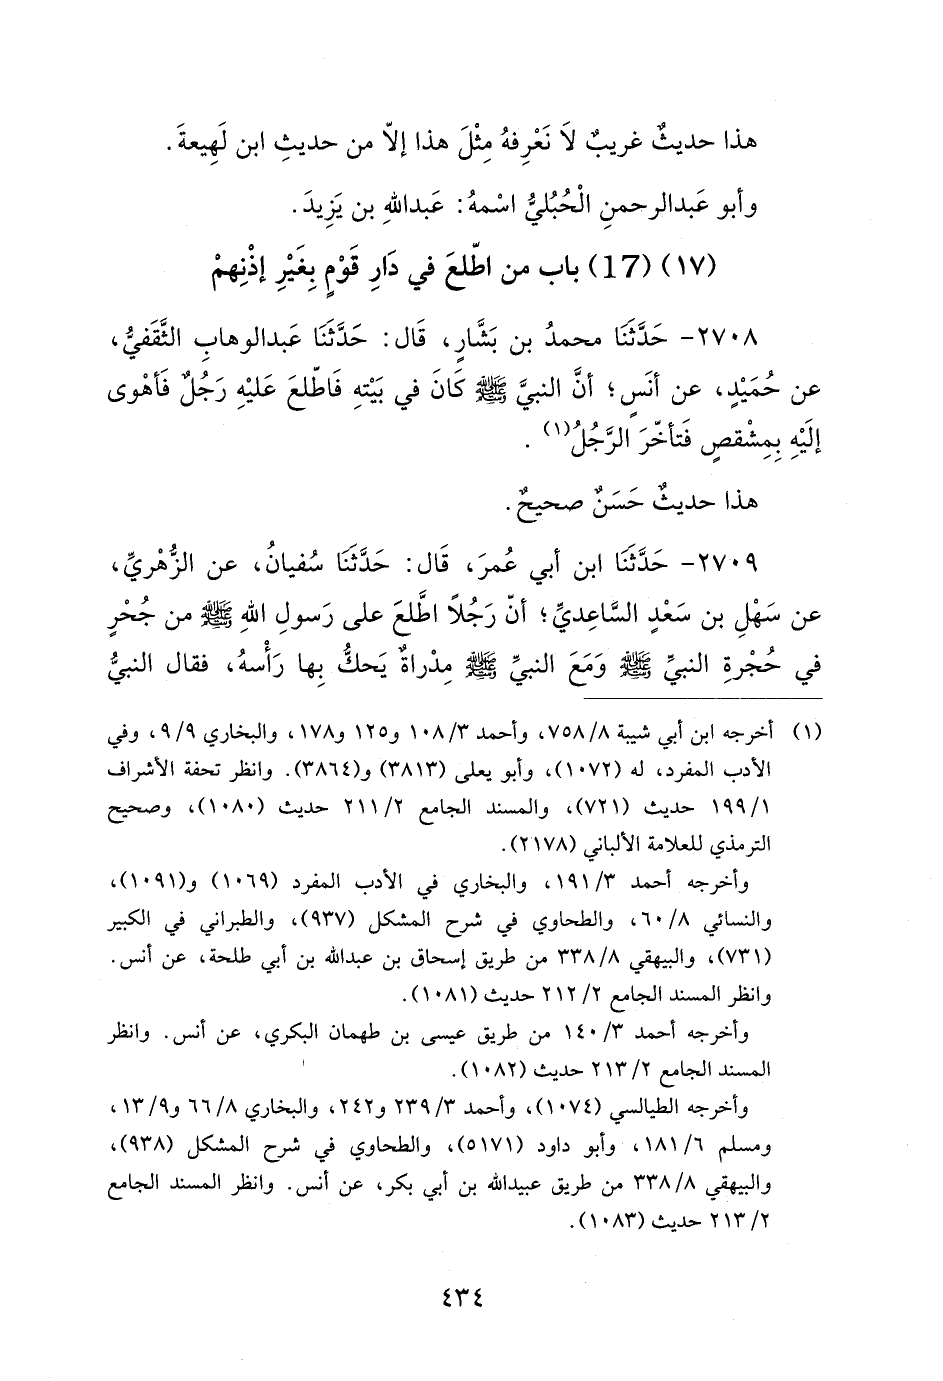 هذا حديثٌ غريبٌ لاَ نَعْرِفهُ مِثْلَ هذا إلاّ من حديثِ ابن لَهِيعةَ.
وأبو عَبدالرحمنِ الْحُبُليُّ اسْمهُ: عَبداللهِ بن يَزِيدَ.
(١٧) (17) باب من اطّلعَ في دَارِ قَوْمٍ بِغَيْرِ إذْنِهمْ
٢٧٠٨- حَدَّثَنَا محمدُ بن بَشَّارٍ، قَال: حَدَّثَنَا عَبدالوهابِ الثَّقَفيُّ،
عن حُمَيْدٍ، عن أنَسٍ؛ أنَّ النبيَّ ﷺ كَانَ في بَيْتهِ فَاطّلعَ عَليْهِ رَجُلٌ فَأهْوى
إلَيْهِ بِمِشْقصٍ فَتأخّرَ الرَّجُلُ(١).
هذا حديثٌ حَسَنٌ صحيحٌ.
٢٧٠٩- حَدَّثَنَا ابن أبي عُمرَ، قَال: حَدَّثَنَا سُفيانُ، عن الزُّهْريِّ،
عن سَهْلِ بن سَعْدٍ السَّاعِديِّ؛ أنّ رَجُلاً اطَّلعَ على رَسولِ اللهِ ﷺ من جُحْرٍ
في حُجْرةِ النبيِّ ﷺ وَمَعَ النبيِّ ﷺ مِدْراةٌ يَحكُّ بِها رَأْسهُ، فقال النبيُّ
(١) أخرجه ابن أبي شيبة ٧٥٨/٨، وأحمد ١٠٨/٣ و١٢٥ و١٧٨، والبخاري ٩/٩، وفي
الأدب المفرد، له (١٠٧٢)، وأبو يعلى (٣٨١٣) و(٣٨٦٤). وانظر تحفة الأشراف
١٩٩/١ حديث (٧٢١)، والمسند الجامع ٢١١/٢ حديث (١٠٨٠)، وصحيح
الترمذي للعلامة الألباني (٢١٧٨).
وأخرجه أحمد ١٩١/٣، والبخاري في الأدب المفرد (١٠٦٩) و(١٠٩١)،
والنسائي ٦٠/٨، والطحاوي في شرح المشكل (٩٣٧)، والطبراني في الكبير
(٧٣١)، والبيهقي ٣٣٨/٨ من طريق إسحاق بن عبدالله بن أبي طلحة، عن أنس.
وانظر المسند الجامع ٢١٢/٢ حديث (١٠٨١).
وأخرجه أحمد ١٤٠/٣ من طريق عيسى بن طهمان البكري، عن أنس. وانظر
المسند الجامع ٢١٣/٢ حديث (١٠٨٢).
وأخرجه الطيالسي (١٠٧٤)، وأحمد ٢٣٩/٣ و٢٤٢، والبخاري ٦٦/٨ و١٣/٩،
ومسلم ١٨١/٦، وأبو داود (٥١٧١)، والطحاوي في شرح المشكل (٩٣٨)،
والبيهقي ٣٣٨/٨ من طريق عبيدالله بن أبي بكر، عن أنس. وانظر المسند الجامع
٢١٣/٢ حديث (١٠٨٣).
٤٣٤